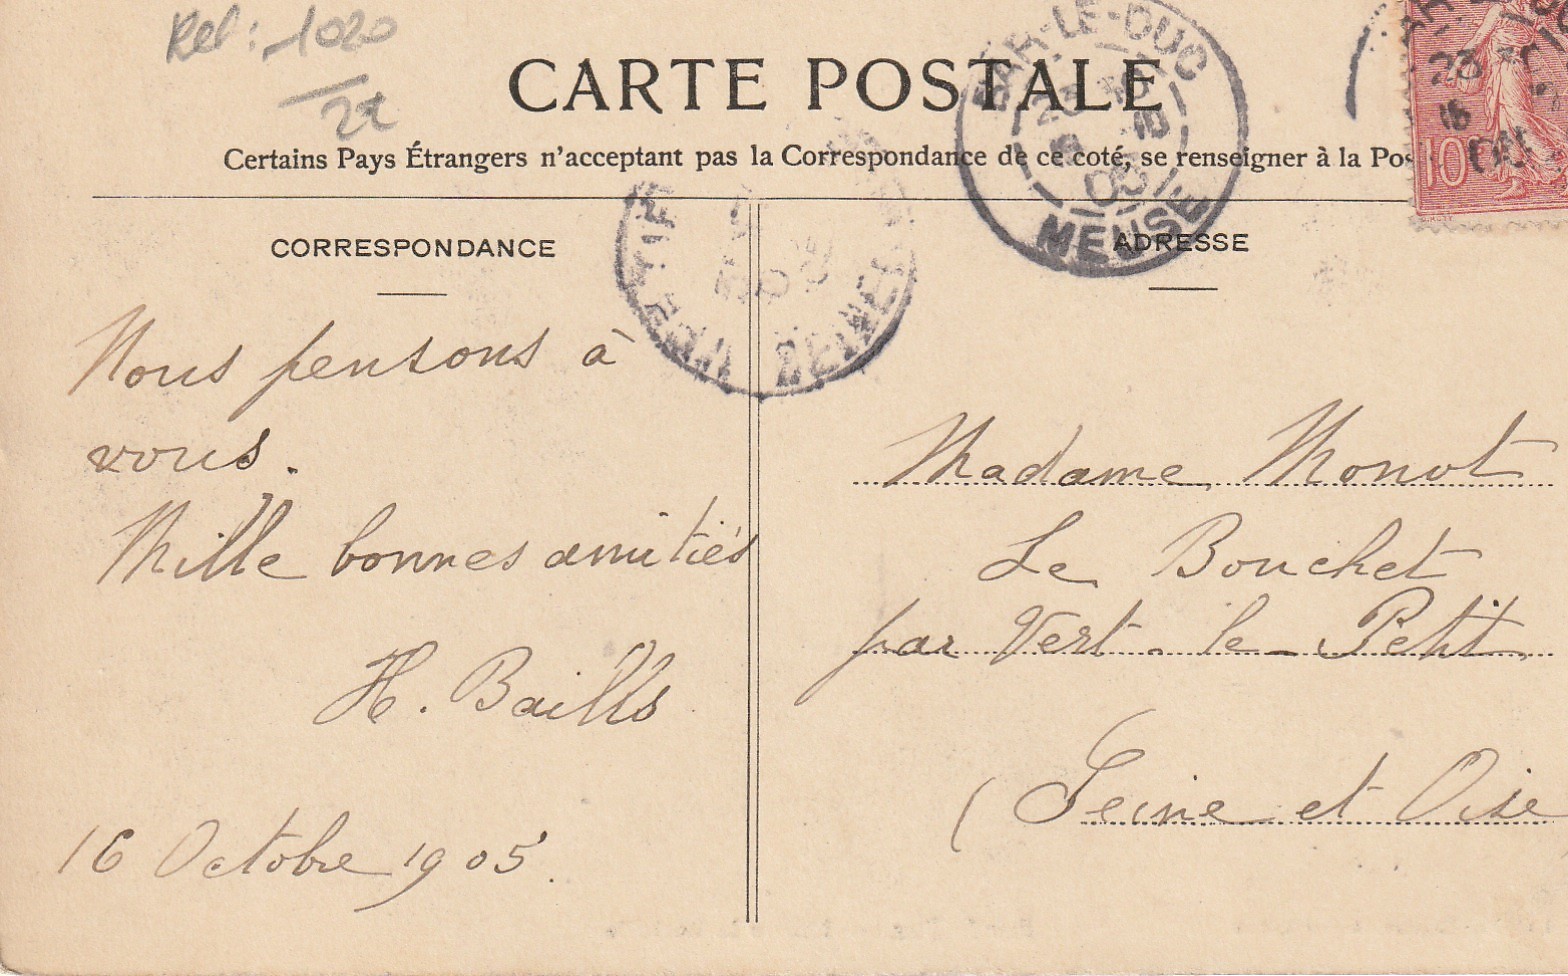 Ref: 1020
2€
CARTE POSTALE
Certains Pays Étrangers n'acceptant pas la Correspondance de ce coté, se renseigner à la Pos
BAR-LE-DUC
MEUSE
10
CORRESPONDANCE
Nous pensons à
vous.
Mille bonnes amitiés
H. Baills
16 Octobre 1905.
ADRESSE
Madame Monot
Le Bouchet
par Vert-le-Petit
(Seine et Oise